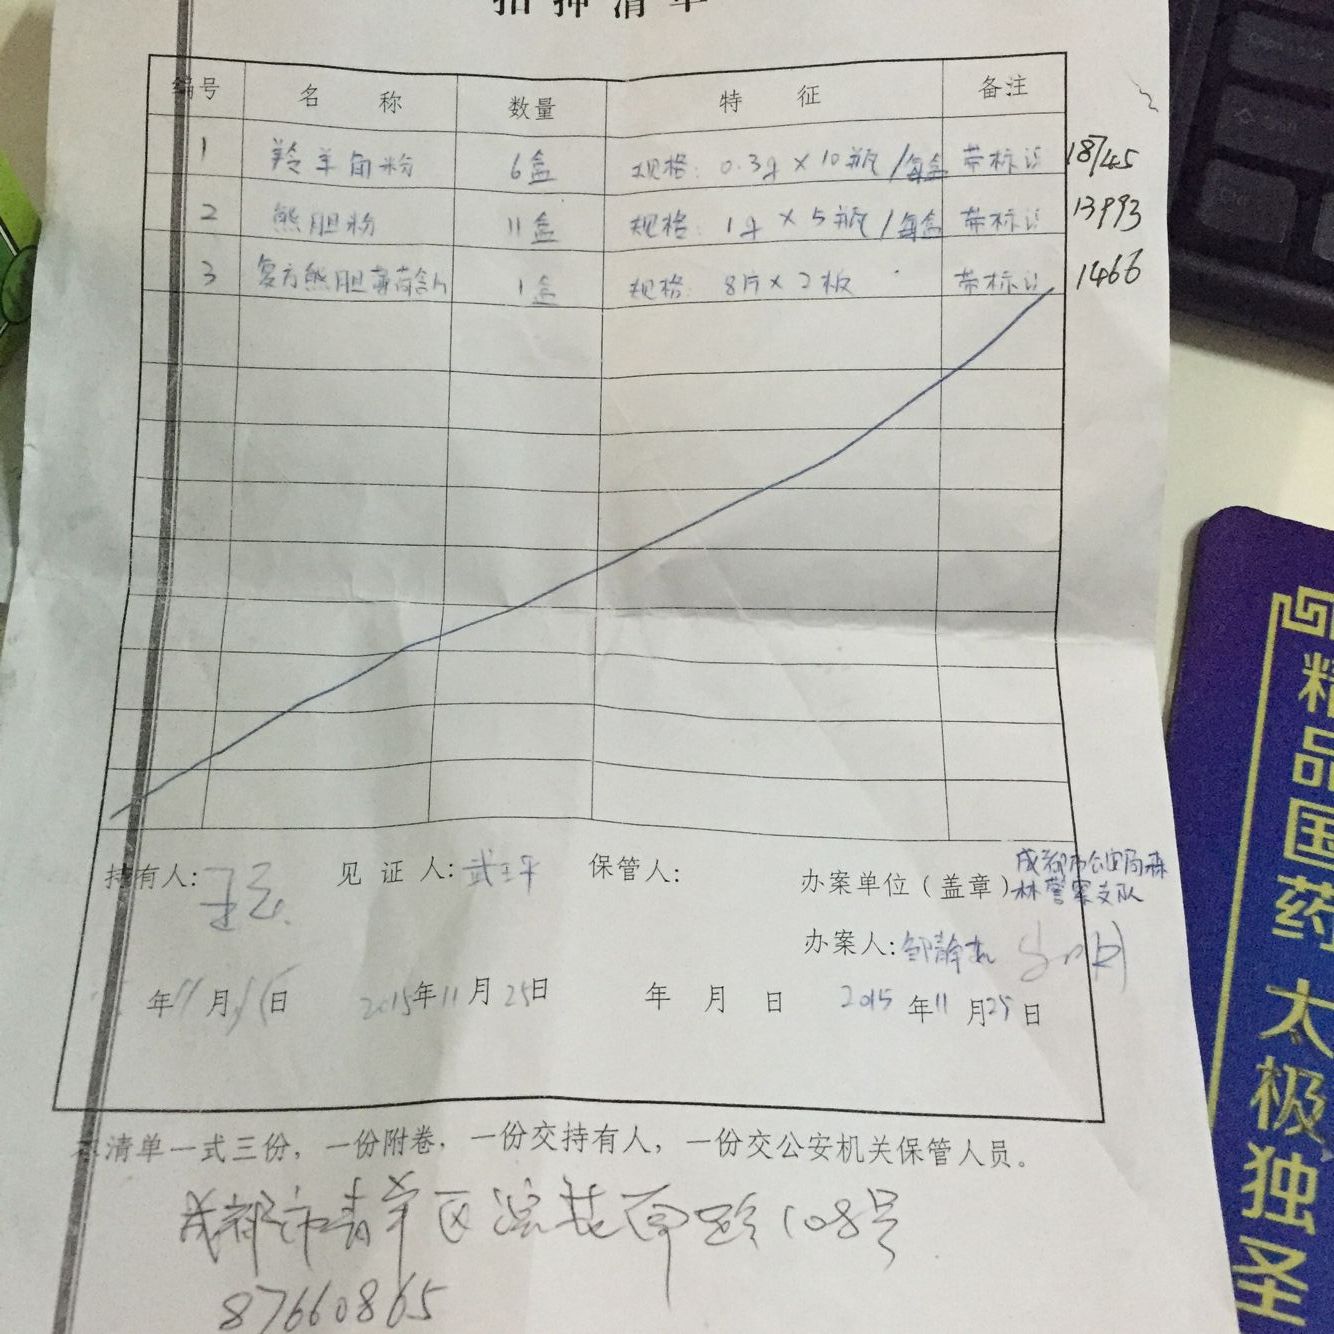 扣押清单
编号 名称 数量 特征 备注
1 羚羊角粉 6盒 规格: 0.3g×10瓶/每盒 带标识 18745
2 熊胆粉 11盒 规格: 1g×5瓶/每盒 带标识 13993
3 复方熊胆薄荷含片 1盒 规格: 8片×2板 带标识 1466
持有人: 见证人: 武玉平 保管人: 办案单位(盖章) 成都市公安局森
林警察支队
办案人: 邹静
年11月 日 2015年11月25日 年 月 日 2015年11月25日
本清单一式三份,一份附卷,一份交持有人,一份交公安机关保管人员。
成都市青羊区浣花南路108号
87660865
精品国药 太极独圣